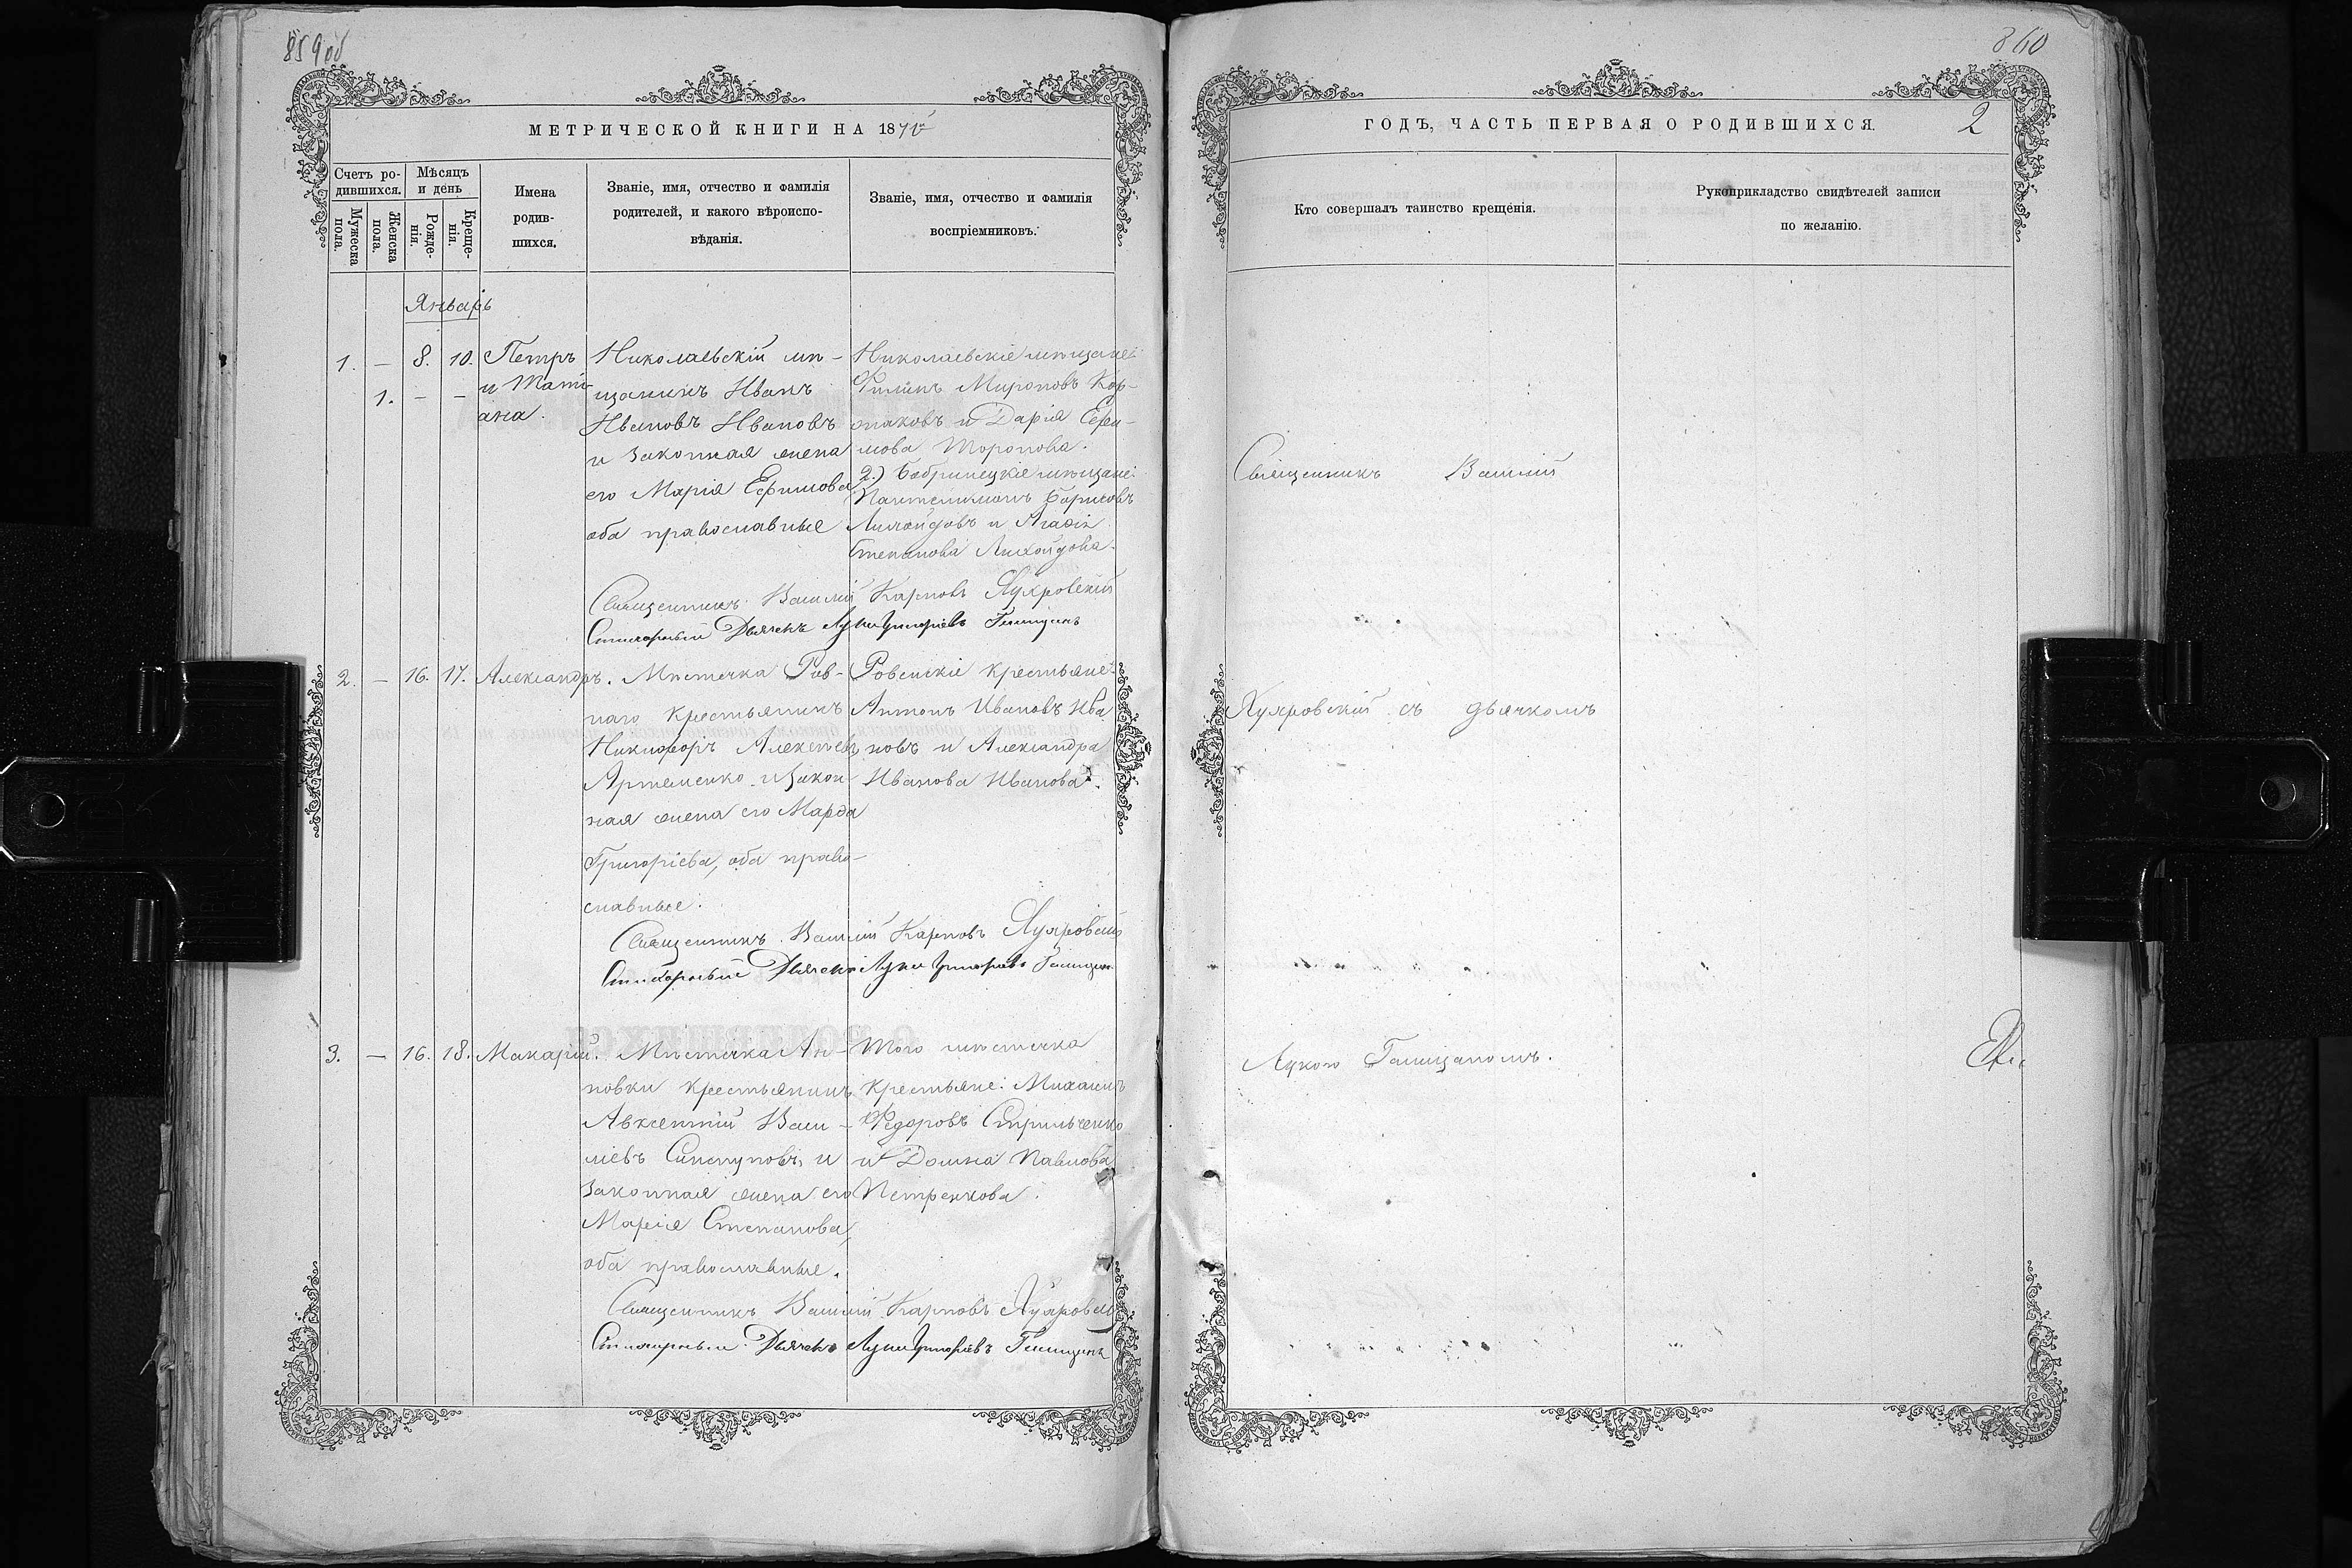 859 об
МЕТРИЧЕСКОЙ КНИГИ НА 187
Счетъ ро-
дившихся.
Мужеска
пола.
Женска
пола.
Мѣсяцъ
и день
Рожде-
нія.
Креще-
нія.
Имена
родив-
шихся.
Званіе, имя, отчество и фамилія
родителей, и какого вѣроиспо-
вѣданія.
Званіе, имя, отчество и фамилія
воспріемниковъ.
Январь
1. — 8. 10. Петръ
1. — — и Тати-
ана.
Николаевскій мѣ-
щанинъ Иванъ
Ивановъ Ивановъ
и законная жена
его Марія Ефимова
оба православные
Николаевскіе мѣщане:
Филипъ Мироновъ Кор-
наковъ и Дарія Ефи-
мова Торопова.
2.) Бобринецкіе мѣщане:
Пантелимонъ Борисовъ
и Агафія
Степанова
Священникъ Василій Карповъ
Стихарный Дьячекъ Лука Григорьевъ Галицанъ
2. — 16. 17. Александръ.
Мѣстечка Ров-
наго крестьянинъ
Никифоръ Алексѣевъ
Артеменко и закон-
ная жена его Марфа
Григоріева, оба право-
славные.
Ровенскіе крестьяне:
Антонъ Ивановъ Ива
новъ и Александра
Иванова Иванова.
Священникъ Василій Карповъ
Стихарный Дьячекъ Лука Григорьевъ Галицан
3. — 16. 18. Макарій.
Мѣстечка Ан-
новки крестьянинъ
Авксентій Васи-
ліевъ и
законная жена его
Марія Степанова,
оба православные.
Того мѣстечка
крестьяне: Михаилъ
Федоровъ Стрильченко
и Домна Павлова
Петренкова.
Священникъ Василій Карповъ
Стихарный Дьячекъ Лука Григорьевъ Галицанъ
860
ГОДЪ, ЧАСТЬ ПЕРВАЯ О РОДИВШИХСЯ.
2
Кто совершалъ таинство крещенія.
Рукоприкладство свидѣтелей записи
по желанію.
Священникъ Василій
съ дьячкомъ
Лукою Галицаномъ.